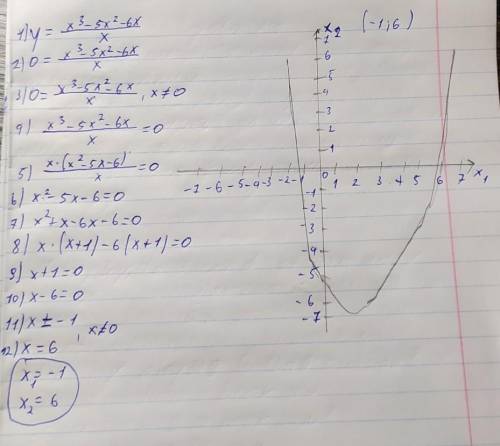 1) y = x³-5x²-6x / x
2) 0 = x³-5x²-6x / x
3) 0 = x³-5x²-6x / x, x≠0
4) x³-5x²-6x / x = 0
5) x·(x²-5x-6) / x = 0
6) x²-5x-6=0
7) x²+x-6x-6=0
8) x·(x+1)-6(x+1)=0
9) x+1=0
10) x-6=0
11) x = -1
12) x = 6, x≠0
x₁=-1
x₂=6
x₂ (-1;6)
7
6
5
4
3
2
1
-7 -6 -5 -4 -3 -2 -1 1 2 3 4 5 6 7 x₁
-1
-2
-4
-5
-6
-7